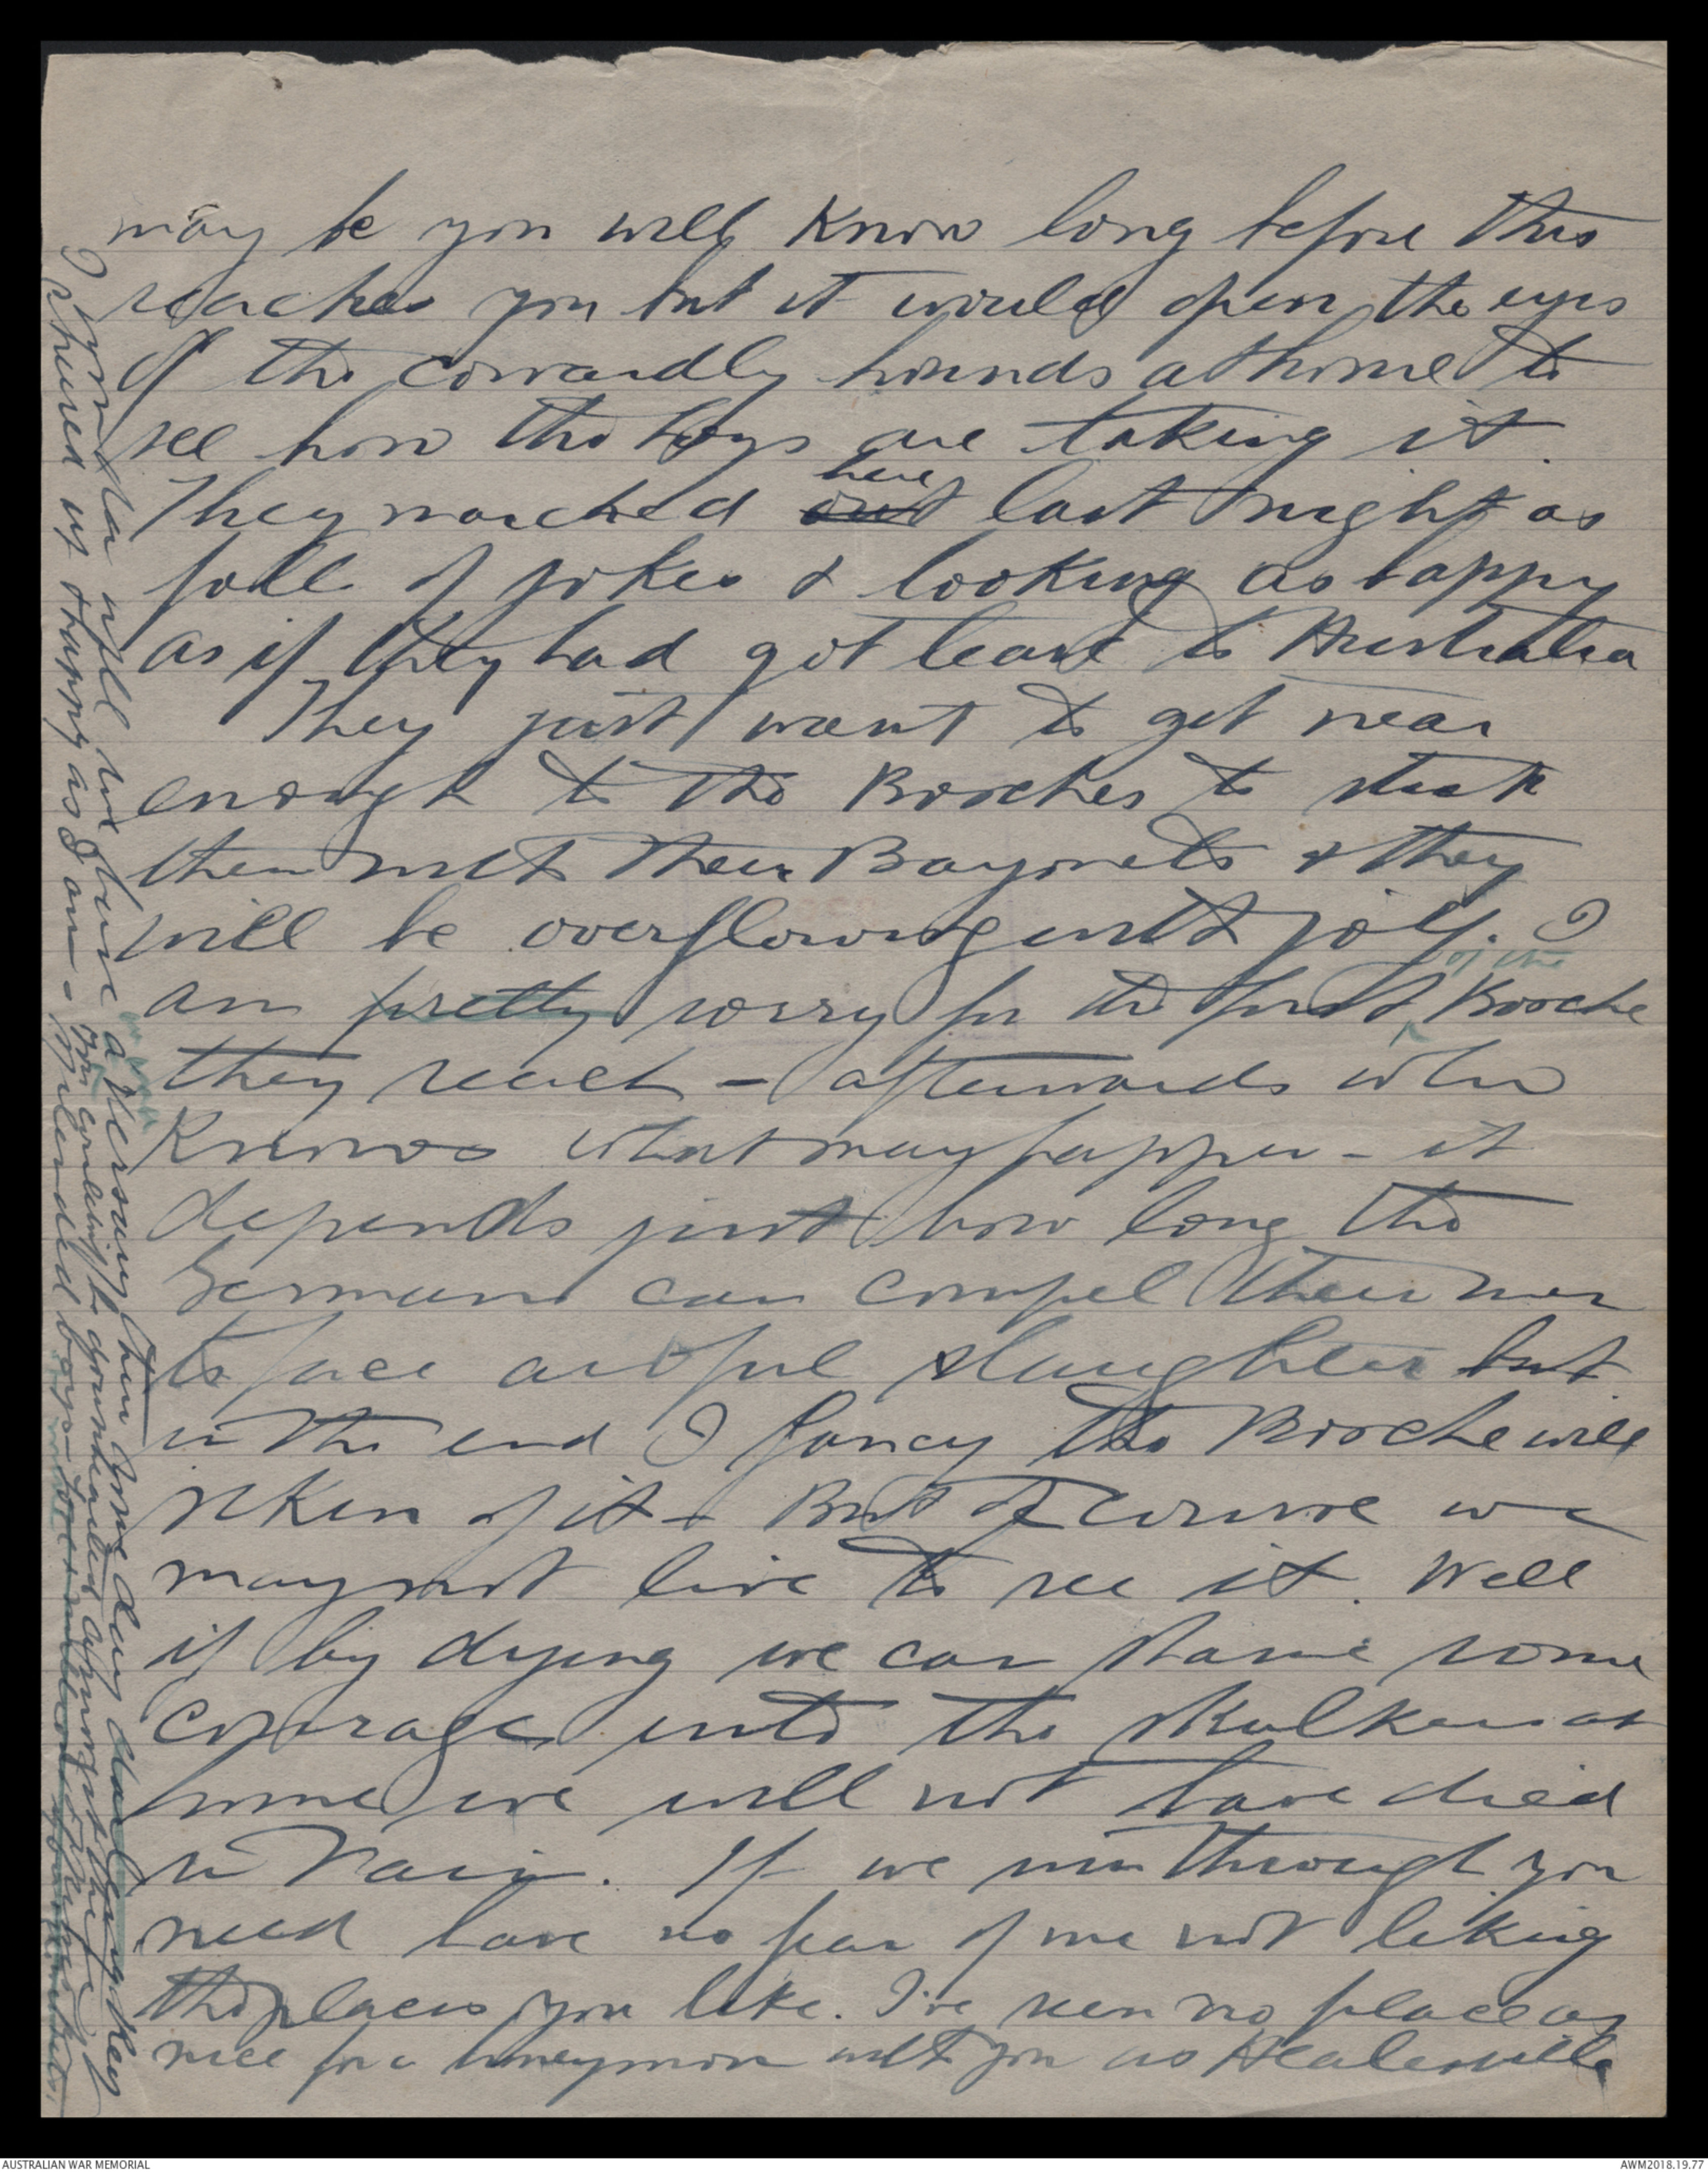 may be you will know long before this
reaches you but it would open the eyes
of the cowardly hounds at home to
see how the boys are taking it.
They marched out here last night as
full of jokes & looking as happy
as if they had got leave to Australia
They just want to get near
enough to the Bosches to stick
them with their Bayonets & they
will be overflowing with joy. I
am pretty sorry for the first of the Bosche
they reach - afterwards who
knows what may happen - it
depends just how long the
Germans can compel their men
to face awful slaughter but
in the end I fancy the Bosche will
sicken of it - But of course we
may not live to see it. Well
if by dying we can shame some
courage into the skulkers at
home we will not have died
in vain. If we win through you
need have no fear of me not liking
the places you like. I've seen no place as
nice for a honeymoon with you as Healesville
I wonder will we have a Kersey hun some day darling
cheered up & happy as I am - One couldn't be downhearted amongst these
splendid boys
AUSTRALIAN WAR MEMORIAL
AWM2018.19.77